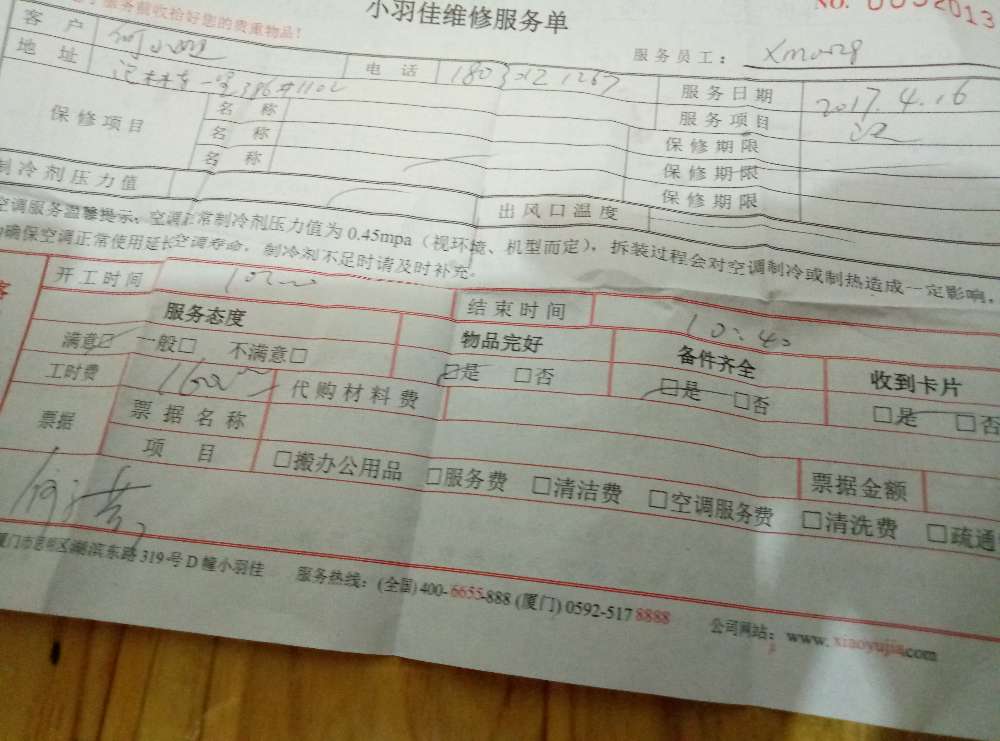 服务前收拾好您的贵重物品!
小羽佳维修服务单
No. 0052013
服务员工:
客户 何小姐 电话 服务日期 2017.4.16
地址 386#1102 服务项目
保修项目 名称 保修期限
名称 保修期限
名称 保修期限
制冷剂压力值 出风口温度
空调服务温馨提示:空调正常制冷剂压力值为0.45mpa(视环境、机型而定),拆装过程会对空调制冷或制热造成一定影响,
为确保空调正常使用延长空调寿命,制冷剂不足时请及时补充.
开工时间 结束时间 10:40
服务态度 物品完好 备件齐全 收到卡片
满意☑ 一般□ 不满意□ ☑是 □否 □是 □否 □是 □否
工时费 代购材料费
票据 票据名称 票据金额
项目 □搬办公用品 □服务费 □清洁费 □空调服务费 □清洗费 □疏通
厦门市思明区湖滨东路319号D幢小羽佳 服务热线:(全国)400-6655-888 (厦门)0592-5178888 公司网站:www.xiaoyujia.com